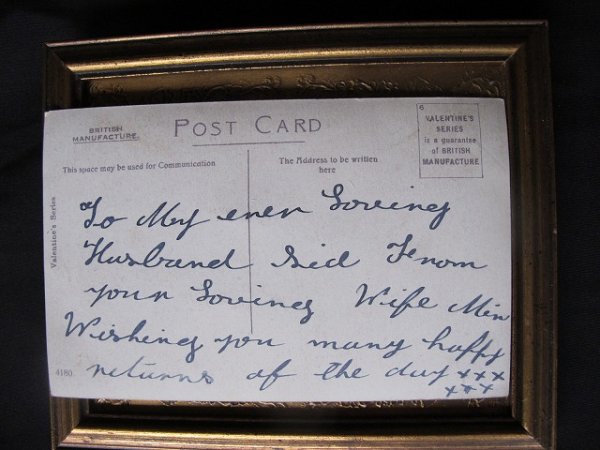 BRITISH
MANUFACTURE.
POST CARD
6
VALENTINE'S
SERIES
is a guarantee
of BRITISH
MANUFACTURE
This space may be used for Communication
The Address to be written
here
Valentine's Series
To My ever Loveing
Husband Sid From
your Loveing Wife Min
Wishing you many happy
returns of the day xxx
xxx
4180.